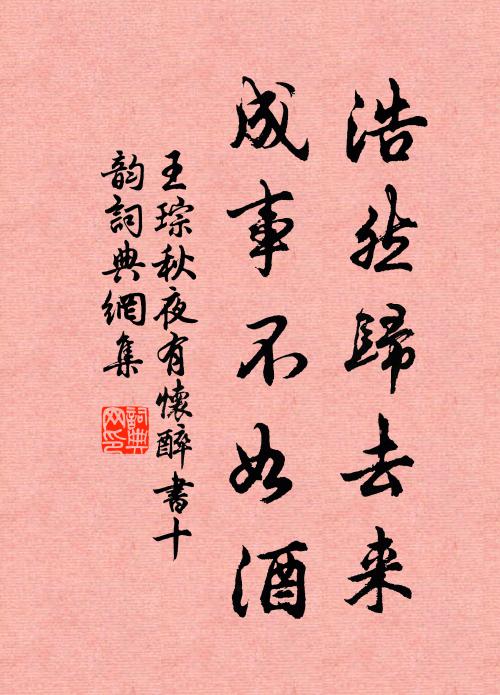 浩然歸去来
成事不如酒
王琮秋夜有懷醉書十
韵詞典網集
詞典网印